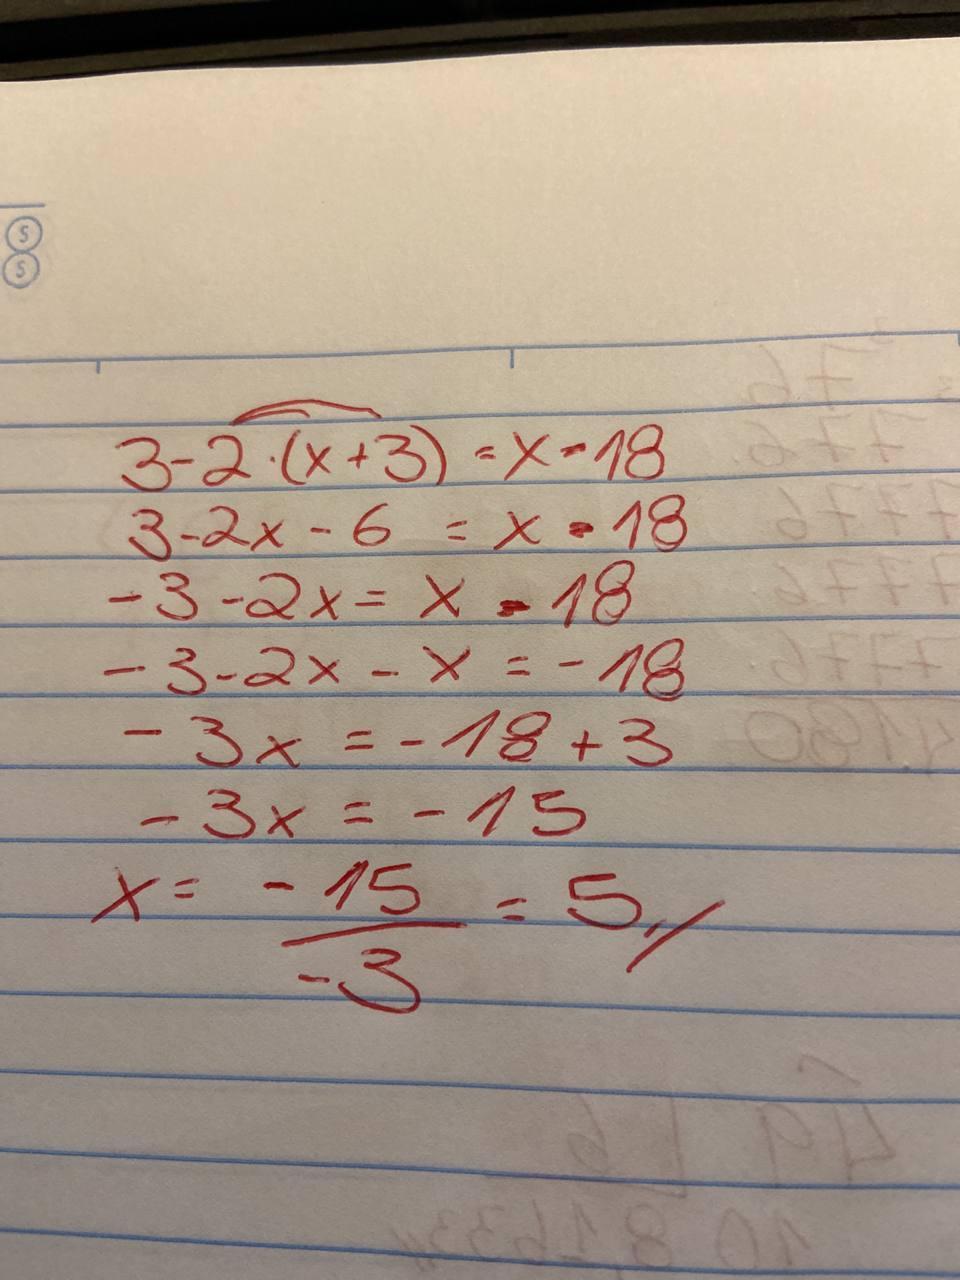 S
S
3-2·(x+3) = x-18
3-2x-6 = x-18
-3-2x= x-18
-3-2x-x=-18
-3x=-18+3
-3x=-15
x= -15/-3 = 5,/